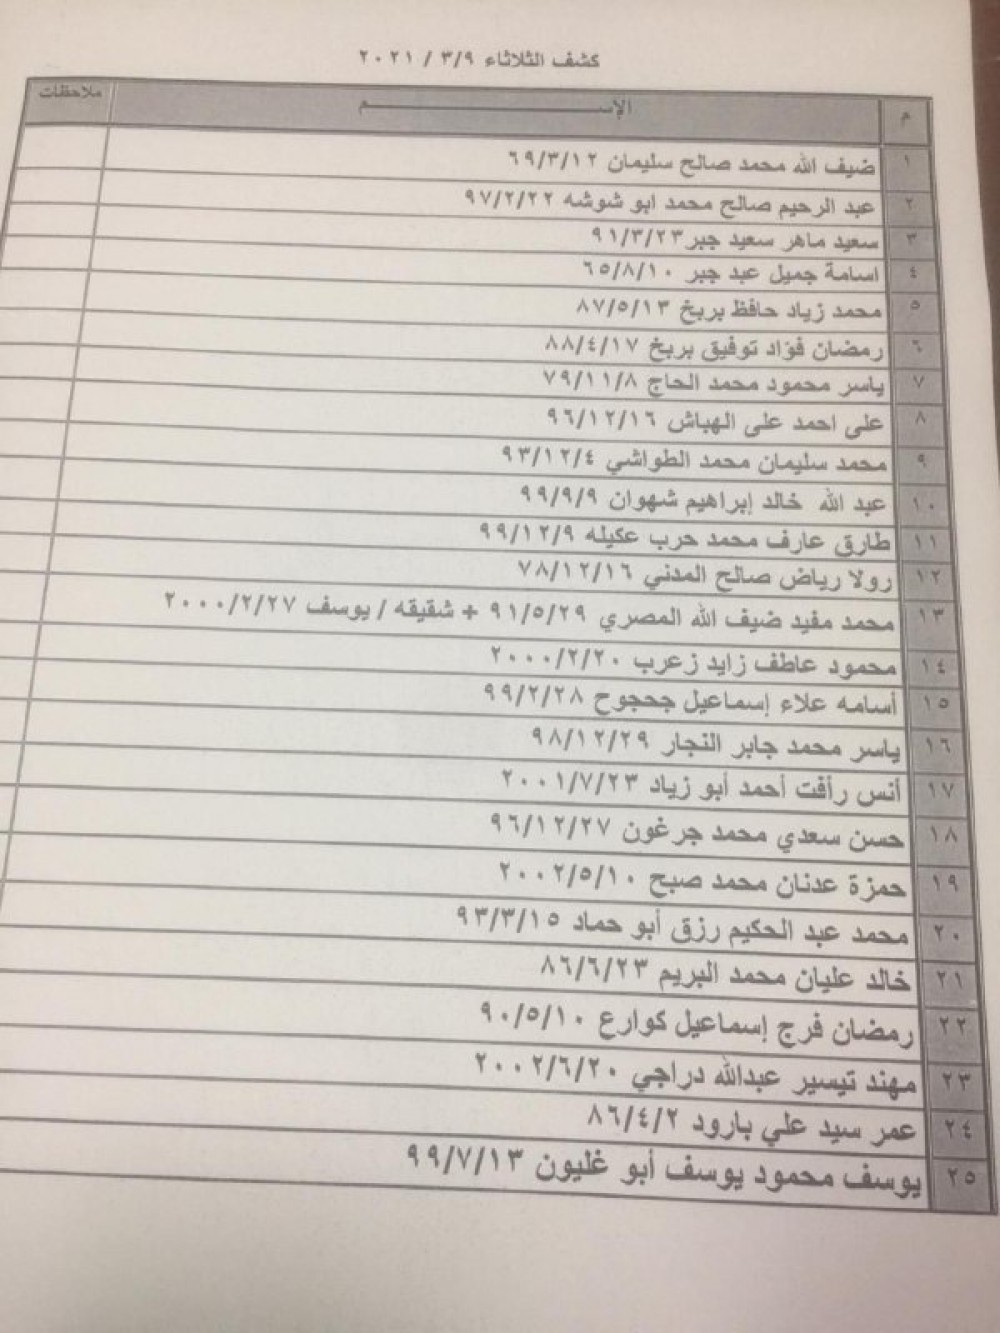 كشف الثلاثاء ٢٠٢١ / ٣/٩
م الإســـــــــم ملاحظات
١ ضيف الله محمد صالح سليمان ٦٩/٣/١٢
٢ عبد الرحيم صالح محمد ابو شوشه ٩٧/٢/٢٢
٣ سعيد ماهر سعيد جبر ٩١/٣/٢٣
٤ اسامة جميل عبد جبر ٦٥/٨/١٠
٥ محمد زياد حافظ بربخ ٨٧/٥/١٣
٦ رمضان فؤاد توفيق بربخ ٨٨/٤/١٧
٧ ياسر محمود محمد الحاج ٧٩/١١/٨
٨ على احمد على الهباش ٩٦/١٢/١٦
٩ محمد سليمان محمد الطواشي ٩٣/١٢/٤
١٠ عبد الله خالد إبراهيم شهوان ٩٩/٩/٩
١١ طارق عارف محمد حرب عكيله ٩٩/١٢/٩
١٢ رولا رياض صالح المدني ٧٨/١٢/١٦
١٣ محمد مفيد ضيف الله المصري ٩١/٥/٢٩ + شقيقه / يوسف ٢٠٠٠/٢/٢٧
١٤ محمود عاطف زايد زعرب ٢٠٠٠/٢/٢٠
١٥ أسامه علاء إسماعيل جحجوح ٩٩/٢/٢٨
١٦ ياسر محمد جابر النجار ٩٨/١٢/٢٩
١٧ أنس رأفت أحمد أبو زياد ٢٠٠١/٧/٢٣
١٨ حسن سعدي محمد جرغون ٩٦/١٢/٢٧
١٩ حمزة عدنان محمد صبح ٢٠٠٢/٥/١٠
٢٠ محمد عبد الحكيم رزق أبو حماد ٩٣/٣/١٥
٢١ خالد عليان محمد البريم ٨٦/٦/٢٣
٢٢ رمضان فرج إسماعيل كوارع ٩٠/٥/١٠
٢٣ مهند تيسير عبدالله دراجي ٢٠٠٢/٦/٢٠
٢٤ عمر سيد علي بارود ٨٦/٤/٢
٢٥ يوسف محمود يوسف أبو غليون ٩٩/٧/١٣